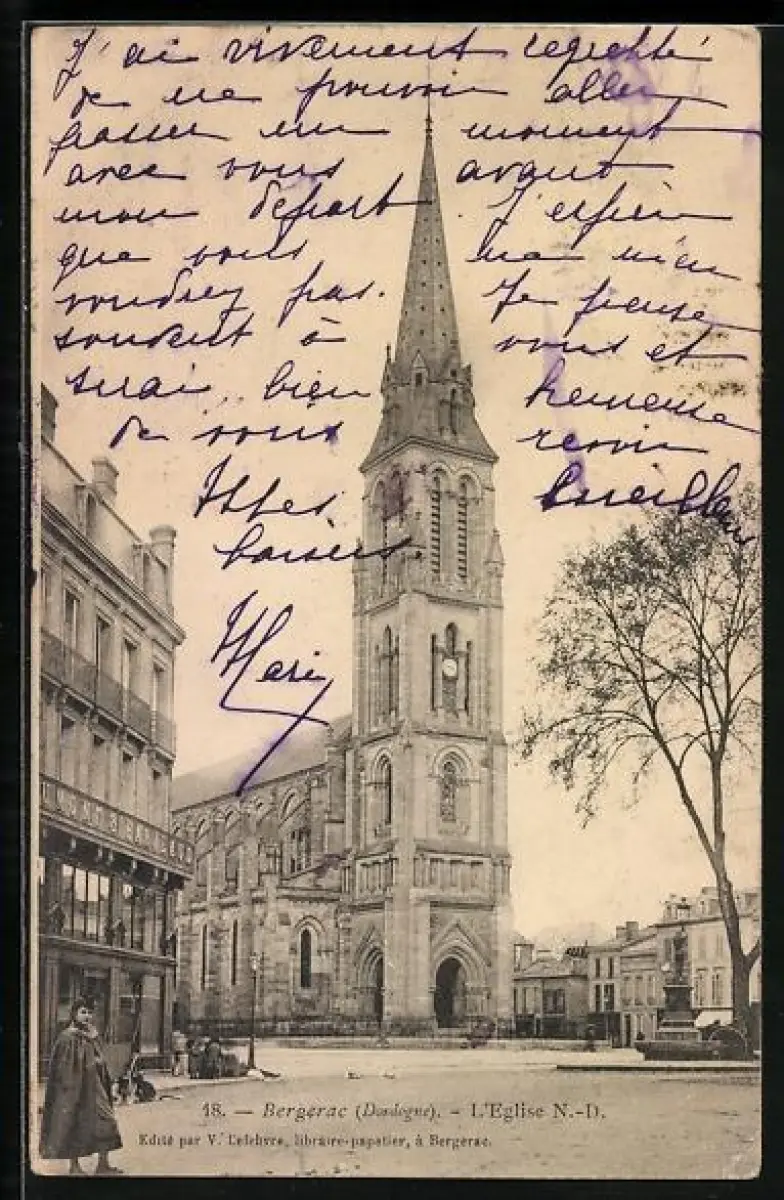 J'ai vivement regretté
de ne pouvoir aller
passer un moment
avec vous avant
mon départ. J'espère
que vous ne m'en
voudrez pas. Je pense
souvent à vous et
serai bien heureuse
de vous revoir
Mes meilleurs
baisers.
Marie
18. — Bergerac (Dordogne). - L'Eglise N.-D.
Edité par V. Lefebvre, libraire-papetier, à Bergerac.